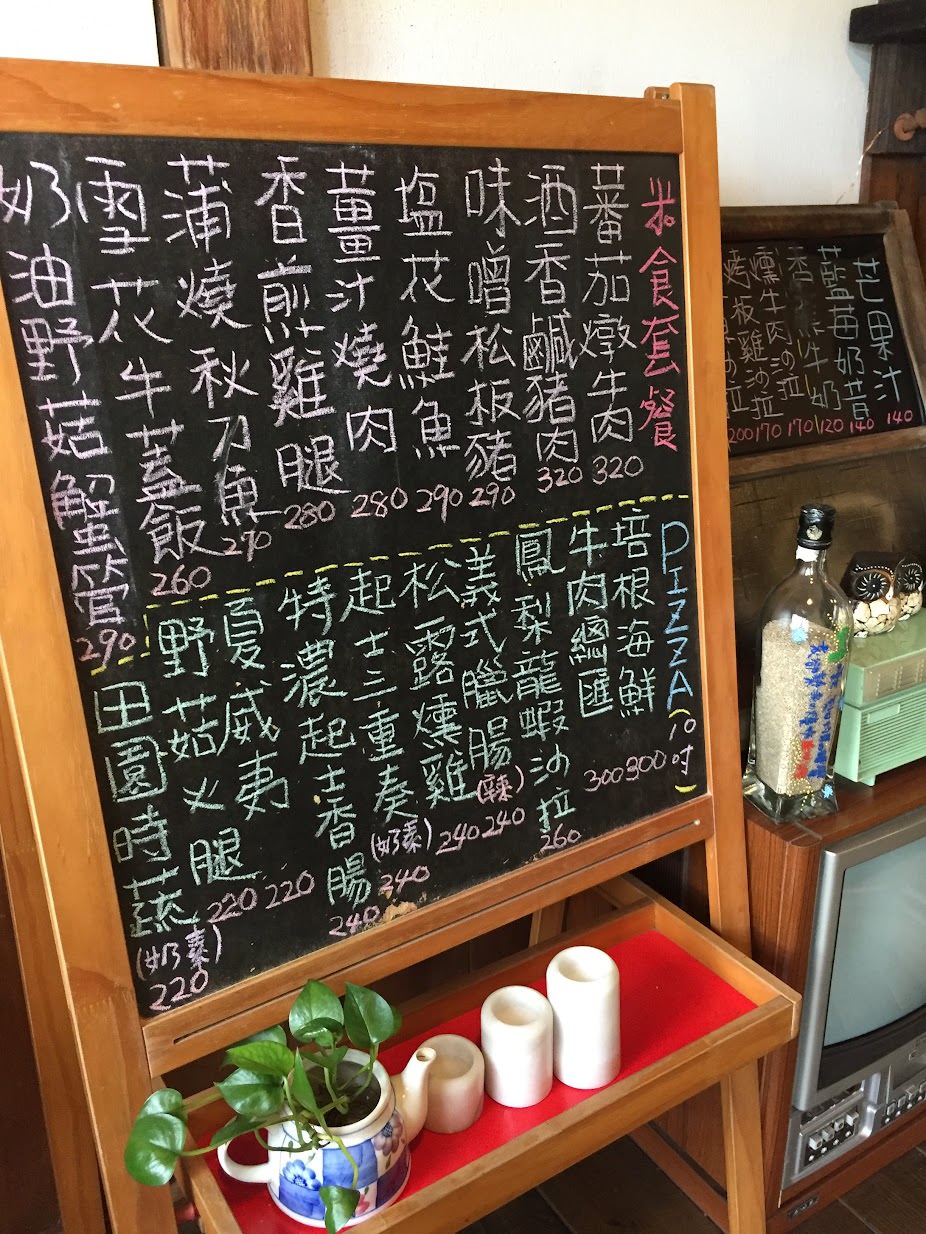 米食套餐
蕃茄燉牛肉 320
酒香鹹豬肉 320
味噌松板豬 290
塩花鮭魚 290
薑汁燒肉 280
香煎雞腿 280
蒲燒秋刀魚 270
雪花牛蓋飯 260
奶油野菇蟹管 290
PIZZA(10吋)
培根海鮮 300
牛肉總匯 300
鳳梨龍蝦沙拉 260
義式臘腸(辣) 240
松露燻雞 240
起士三重奏(奶素) 240
特濃起士香腸 240
夏威夷 220
野菇火腿 220
田園時蔬(奶素) 220
芒果汁 140
藍莓奶昔 140
牛奶 120
燻牛肉沙拉 170
烤板雞沙拉 170
200